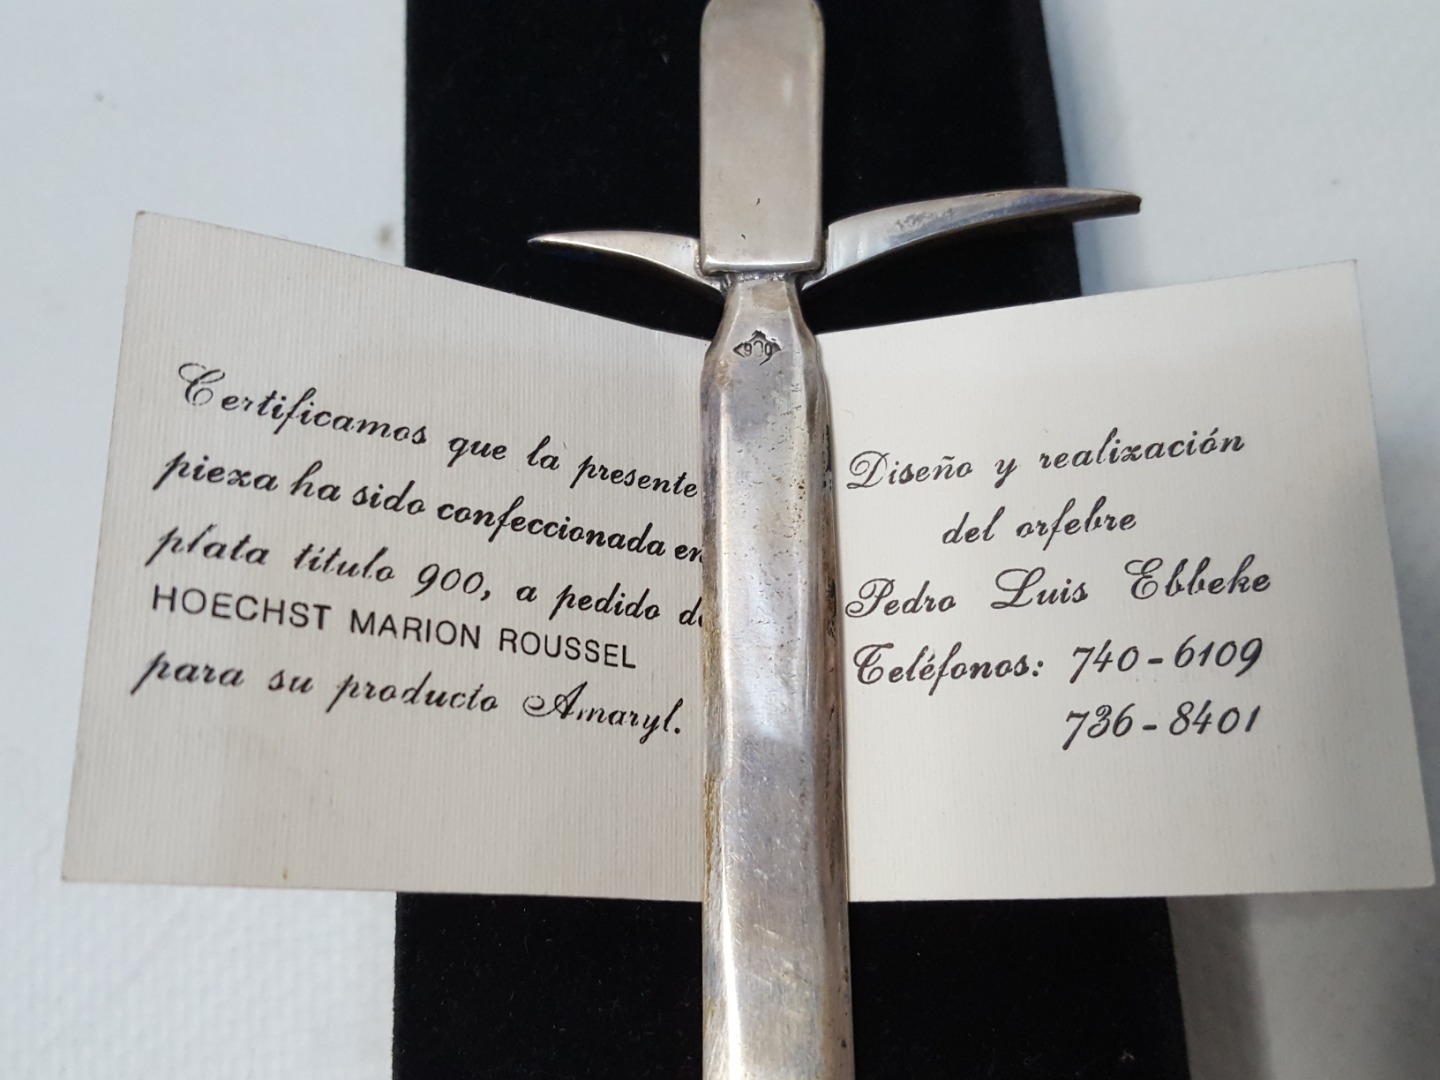 Certificamos que la presente
pieza ha sido confeccionada en
plata título 900, a pedido
HOECHST MARION ROUSSEL
para su producto Amaryl.
900
Diseño y realización
del orfebre
Pedro Luis Ebbeke
Teléfonos: 740-6109
736-8401